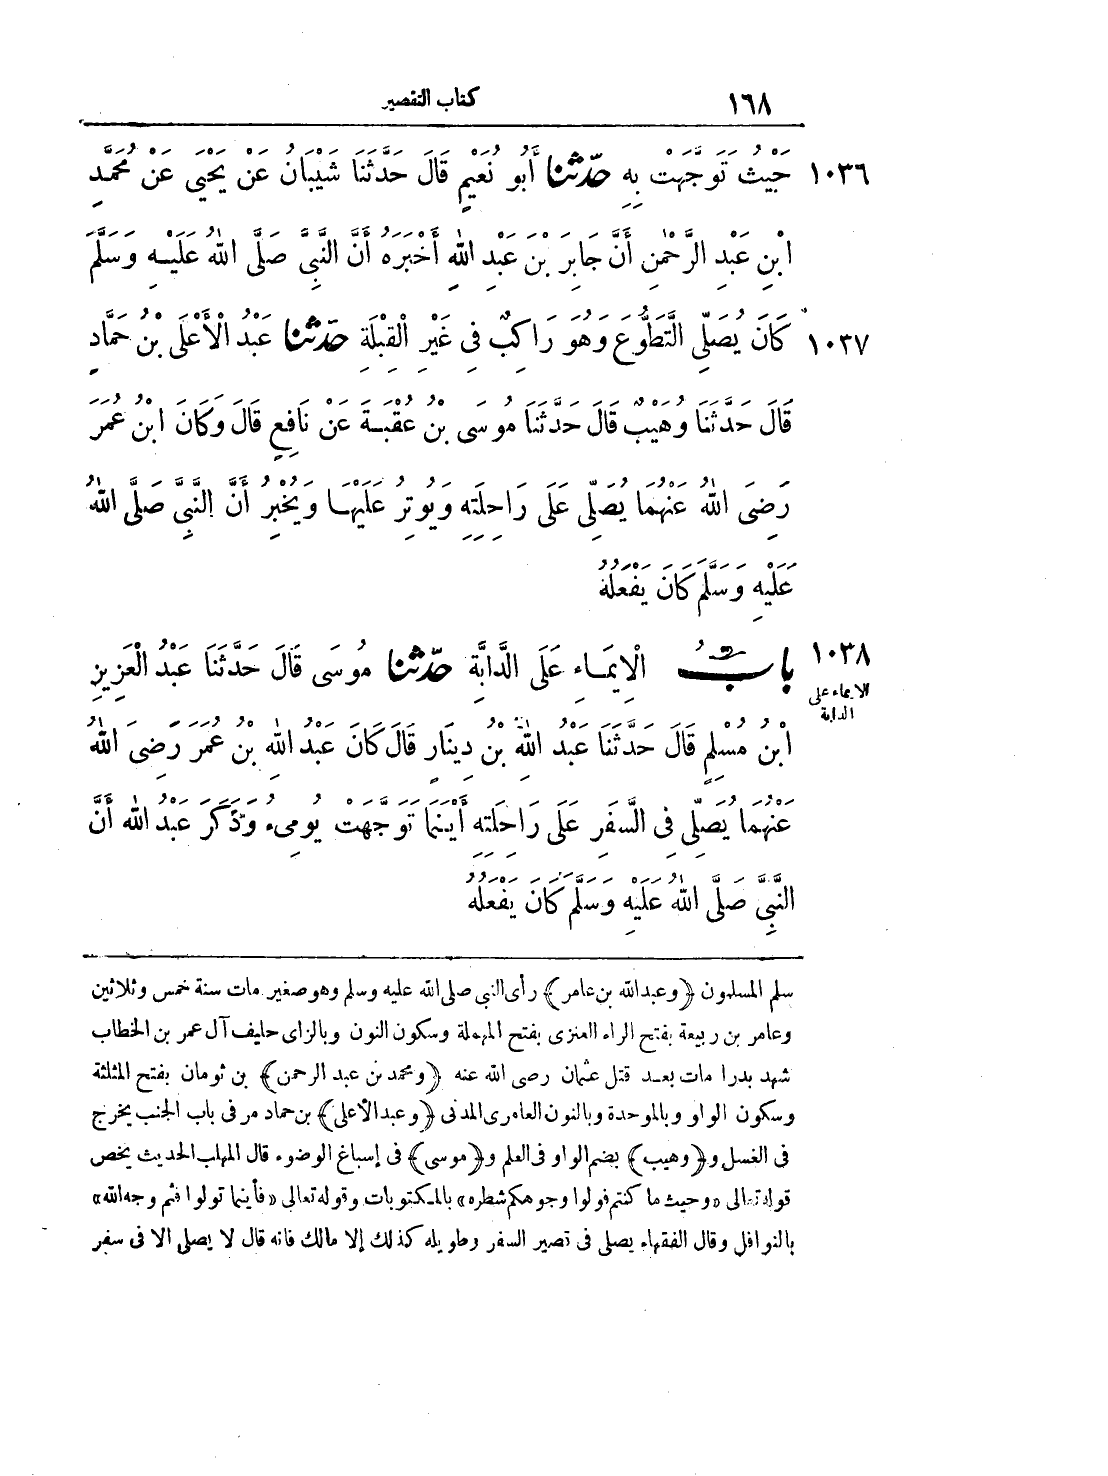 ١٦٨ كتاب التقصير
١٠٣٦ حَيْثُ تَوَجَّهَتْ بِهِ حدّثنا أَبُو نُعَيْمٍ قَالَ حَدَّثَنَا شَيْبَانُ عَنْ يَحْيَى عَنْ مُحَمَّدِ
ابْنِ عَبْدِ الرَّحْمٰنِ أَنَّ جَابِرَ بْنَ عَبْدِ اللهِ أَخْبَرَهُ أَنَّ النَّبِيَّ صَلَّى اللهُ عَلَيْهِ وَسَلَّمَ
١٠٣٧ كَانَ يُصَلِّي التَّطَوُّعَ وَهُوَ رَاكِبٌ فِي غَيْرِ الْقِبْلَةِ حدّثنا عَبْدُ الْأَعْلَى بْنُ حَمَّادٍ
قَالَ حَدَّثَنَا وُهَيْبٌ قَالَ حَدَّثَنَا مُوسَى بْنُ عُقْبَةَ عَنْ نَافِعٍ قَالَ وَكَانَ ابْنُ عُمَرَ
رَضِيَ اللهُ عَنْهُمَا يُصَلِّي عَلَى رَاحِلَتِهِ وَيُوتِرُ عَلَيْهَا وَيُخْبِرُ أَنَّ النَّبِيَّ صَلَّى اللهُ
عَلَيْهِ وَسَلَّمَ كَانَ يَفْعَلُهُ
١٠٣٨ بابُ الْإِيمَاءِ عَلَى الدَّابَّةِ حدّثنا مُوسَى قَالَ حَدَّثَنَا عَبْدُ الْعَزِيزِ
الايماء على
الدابة
ابْنُ مُسْلِمٍ قَالَ حَدَّثَنَا عَبْدُ اللهِ بْنُ دِينَارٍ قَالَ كَانَ عَبْدُ اللهِ بْنُ عُمَرَ رَضِيَ اللهُ
عَنْهُمَا يُصَلِّي فِي السَّفَرِ عَلَى رَاحِلَتِهِ أَيْنَمَا تَوَجَّهَتْ يُومِىءُ وَذَكَرَ عَبْدُ اللهِ أَنَّ
النَّبِيَّ صَلَّى اللهُ عَلَيْهِ وَسَلَّمَ كَانَ يَفْعَلُهُ
سلم المسلمون ﴿وعبدالله بن عامر﴾ رأى النبي صلى الله عليه وسلم وهو صغير مات سنة خمس وثلاثين
وعامر بن ربيعة بفتح الراء العنزى بفتح المهملة وسكون النون وبالزاى حليف آل عمر بن الخطاب
شهد بدرا مات بعد قتل عثمان رضى الله عنه ﴿ومحمد بن عبد الرحمن﴾ بن ثوبان بفتح المثلثة
وسكون الواو وبالموحدة وبالنون العامرى المدنى ﴿وعبد الأعلى﴾ بن حماد مر فى باب الجنب يخرج
فى الغسل و﴿وهيب﴾ بضم الواو فى العلم و﴿موسى﴾ فى إسباغ الوضوء قال المهلب الحديث يخص
قوله تعالى «وحيث ما كنتم فولوا وجوهكم شطره» بالمكتوبات وقوله تعالى «فأينما تولوا فثم وجه الله»
بالنوافل وقال الفقهاء يصلى فى قصير السفر وطويله كذلك إلا مالك فانه قال لا يصلى الا فى سفر